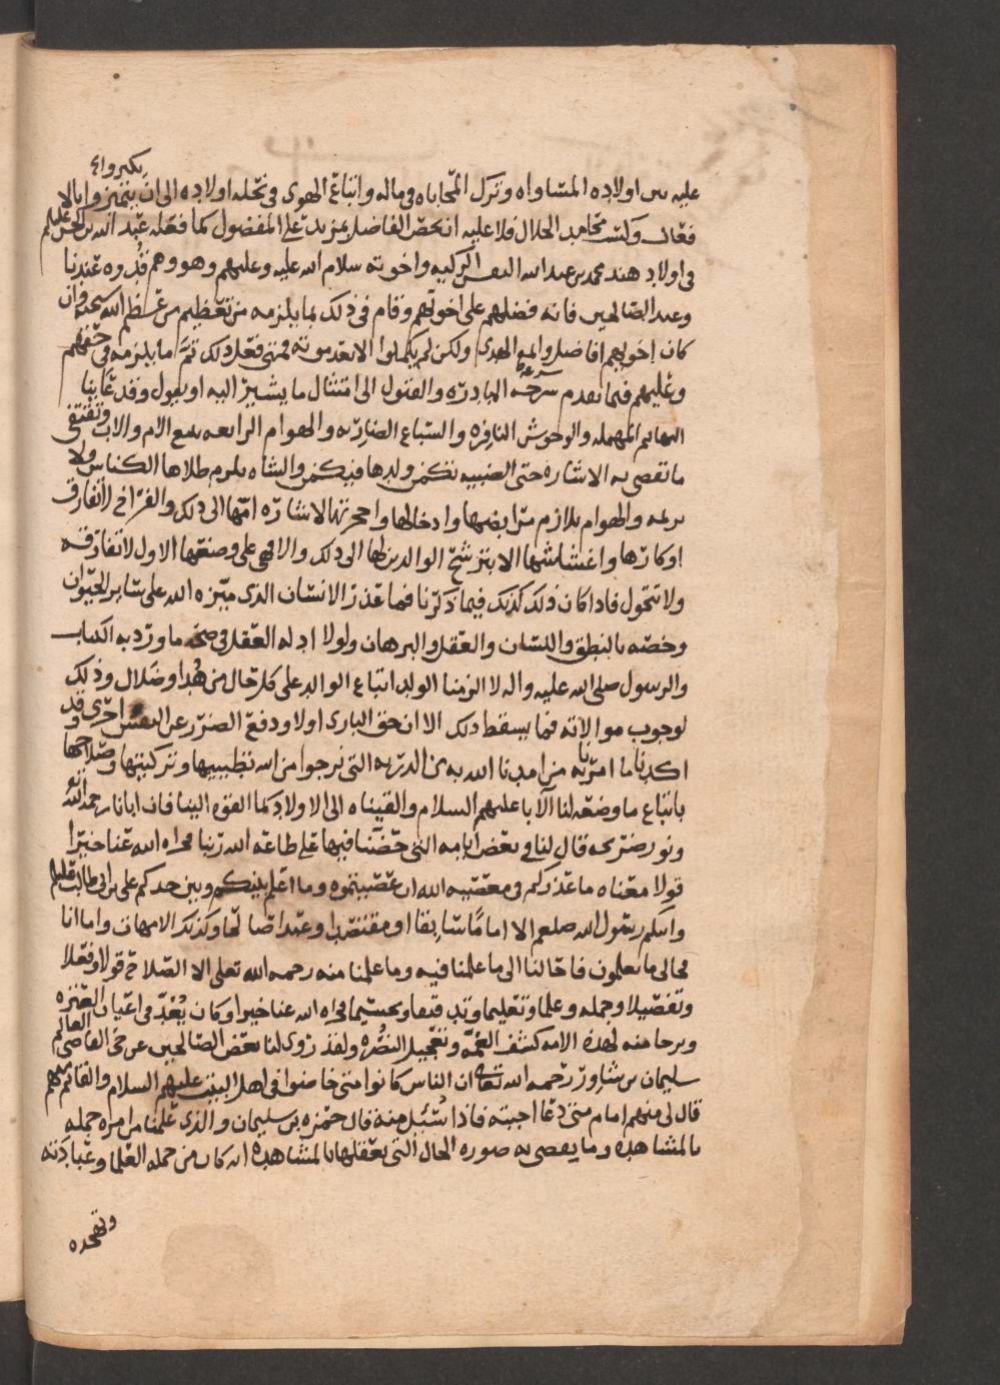 يكبروا
عليه بين اولاده المساواه وترك المحاباه في ماله واتباع الهوى ونحله اولاده الى ان يتميزوا بالا
فعال وكسب محامد الخلال فلا عليه ان يخص الفاضل بمزيد على المفضول كما فعله عبد الله بن الحسن عليهم
في اولاد هند محمد بن عبد الله النفس الزكيه واخوته سلام الله عليه وعليهم وهو وهم قدوه عندنا
وعند الصالحين فانه فضلهم على اخوتهم وقام في ذلك بما يلزمه من تعظيم من عظم الله سبحنه وان
كان إخوتهم افاضل وائمه الهدى ولكن لم يكملوا الا بعد موته فمتى فعل ذلك تم ما يلزمه في حقهم
وعليهم فيما تقدم سرعة المبادره والقبول الى امتثال ما يشير اليه او يقول وقد عاينا
البهايم المهمله والوحوش النافره والسباع الضاريه والهوام الرائعه تتبع الام والاب وتقتفي
ما تقضي به الاشاره حتى الضبيه تكمن ولدها فيكمن والشاه يلزم طلاها الكناس ولا
يريمه والهوام يلازم مرابضها وادخالها واجحرتها لاشارة امها الى ذلك والفراخ لا تفارق
اوكارها واعشاشها الا بترشيح الوالدين لها الى ذلك والا فهي على وضعها الاول لا تفارقه
ولا تتحول فاذا كان ذلك كذلك فيما ذكرنا فما عذر الانسان الذي ميزه الله على ساير الحيوان
وخصه بالنطق واللسان والعقل والبرهان ولولا ادله العقل في صحه ما ورد به الكتاب
والرسول صلى الله عليه واله لالزمنا الولد اتباع الوالد على كل حال من هدا وضلال وذلك
لوجوب موالاته فما يسقط ذلك الا ان حق البارى اولا ودفع الضرر عن النفس احرى وقد
اكدنا ما امرنا به من امدنا الله به من الذريه التي نرجوا من الله تطييبها وتزكيتها وصلاحها
باتباع ما وضعه لنا الآبا عليهم السلام والقيناه الى الاولاد كما القوه الينا فان ابانا رحمه الله
ونور ضريحه قال لنا في بعض ايامه التي حضنا فيها على طاعه الله ربنا فجزاه الله عنا خيرا
قولا معناه ما عذركم في معصيه الله ان عصيتموه وما اعلم بينكم وبين جدكم علي بن ابي طالب عليلم
واسلم رسول الله صلعم الا اماما سابقا او مقتصدا وعبدا صالحا وكذلك الامهات واما انا
فحالي ما تعلمون فاحالنا الى ما علمنا فيه وما علمنا منه رحمه الله تعلى الا الصلاح قولا وفعلا
وتفصيلا وجمله وعلما وتعليما وتجزاه الله عنا خيرا وكان يعد في اعيان العتره
ويرجا منه لهذه الامه كشف الغمه وتعجيل النصره ولقد روى لنا بعض الصالحين عن القاضي العالم
سليمان بن شاور رحمه الله تعالى ان الناس كانوا متى خاضوا في اهل البيت عليهم السلام والقائم منهم
قال لي منهم امام متى دعا اجبته فاذا سئل منه قال حمزه بن سليمان والذي علمنا من امره جمله
بالمشاهده وما يقضي به صوره الحال التي يعقلها بالمشاهده انه كان من جمله العلما وعبادته
وتهجده